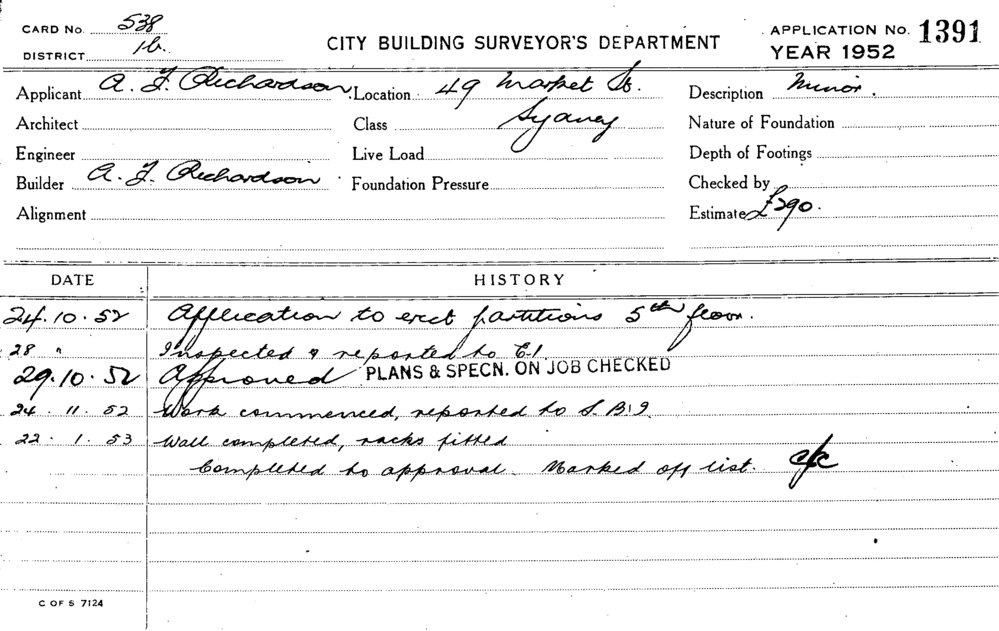 CARD No. 538
DISTRICT 1b.
CITY BUILDING SURVEYOR'S DEPARTMENT
APPLICATION No. 1391
YEAR 1952
Applicant A. F. Richardson Location 49 Market St. Description Minor.
Architect Class Sydney Nature of Foundation
Engineer Live Load Depth of Footings
Builder A. F. Richardson Foundation Pressure Checked by
Alignment Estimate £290.
DATE HISTORY
24.10.52 Application to erect partitions 5th floor.
28 " Inspected & reported to C.I.
29.10.52 Approved PLANS & SPECN. ON JOB CHECKED
24.11.52 Work commenced, reported to S.B.I.
22.1.53 Wall completed, racks fitted
Completed to approval. Marked off list.
C OF S 7124